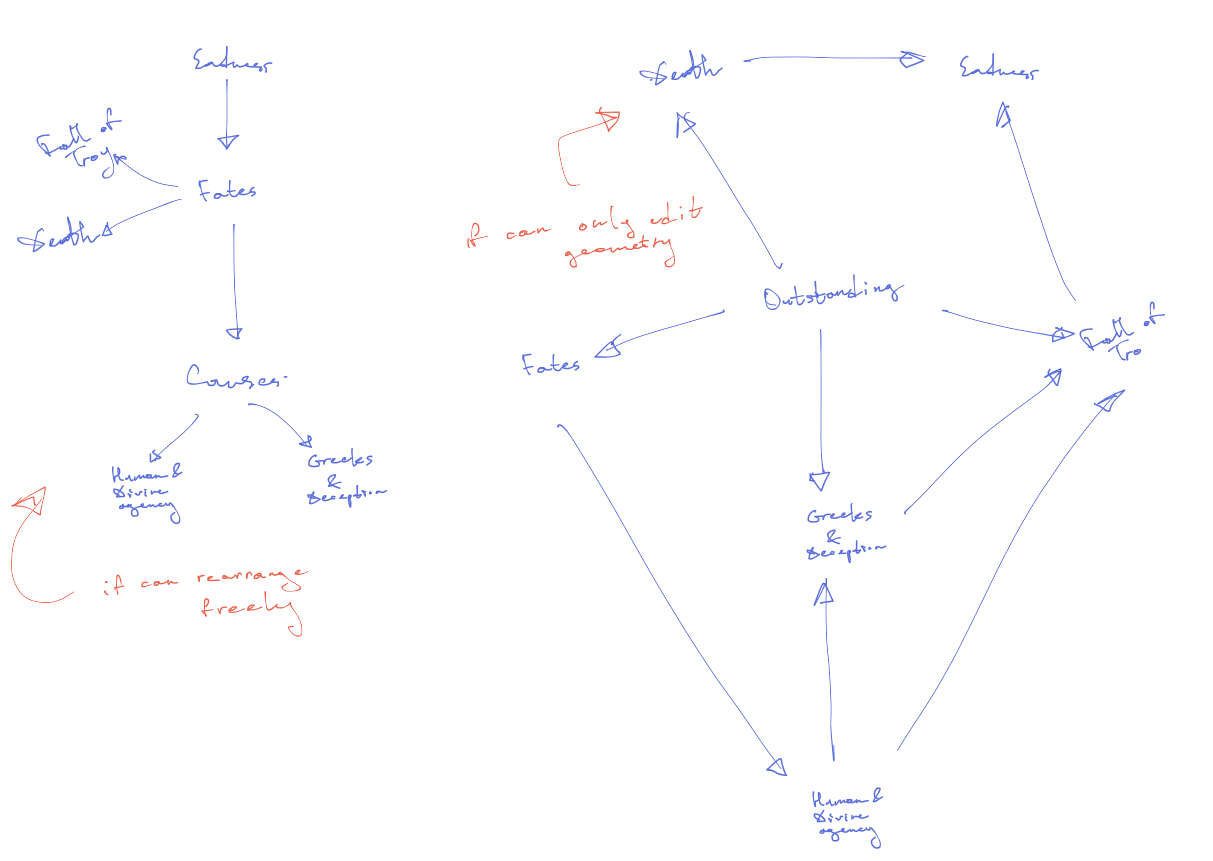 Fall of
Troy
Fates
Death
Causes
Human &
Divine
agency
Greeks
&
Deception
if can rearrange
freely
Death
if can only edit
geometry
Outstanding
Fates
Fall of
Tro
Greeks
&
Deception
Human &
Divine
agency